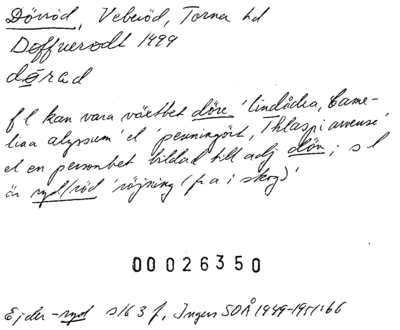 Dövröd, Veberöd, Torna hd
Deffverodt 1499
dørad
fl kan vara växtbet döre 'lindådra, Came-
lina alyssum' el 'penningört, Thlaspi arvense'
el en personbet bildad till adj döv; sl
är ryd/röd 'röjning (fr a i skog)'
00026350
Ejder-ryd s163 f, Ingers SOÅ 1949-1951:66